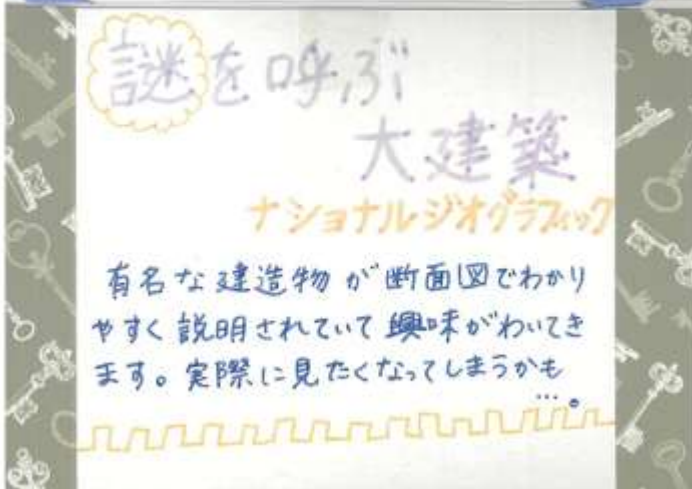 謎を呼ぶ
大建築
ナショナルジオグラフィック
有名な建造物が断面図でわかり
やすく説明されていて興味がわいてき
ます。実際に見たくなってしまうかも
…。